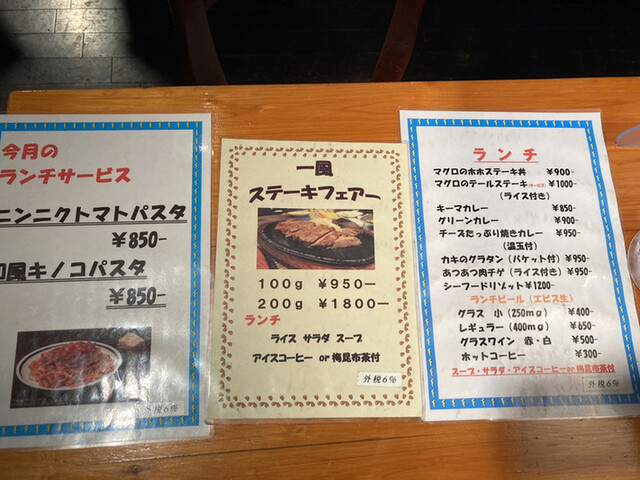 今月の
ランチサービス
ニンニクトマトパスタ
¥850-
和風キノコパスタ
¥850-
外税6%
一風
ステーキフェアー
100g ¥950-
200g ¥1800-
ランチ
ライス サラダ スープ
アイスコーヒー or 梅昆布茶付
外税6%
ランチ
マグロのホホステーキ丼 ¥900-
マグロのテールステーキ ¥1000-
(ライス付き)
キーマカレー ¥850-
グリーンカレー ¥900-
チーズたっぷり焼きカレー ¥950-
(温玉付)
カキのグラタン(バケット付) ¥950-
あつあつ肉チゲ(ライス付き) ¥950-
シーフードリゾット ¥1200-
ランチビール(エビス生)
グラス 小(250mg) ¥400-
レギュラー(400mg) ¥650-
グラスワイン 赤・白 ¥500-
ホットコーヒー ¥300-
スープ・サラダ・アイスコーヒーor梅昆布茶付
外税6%